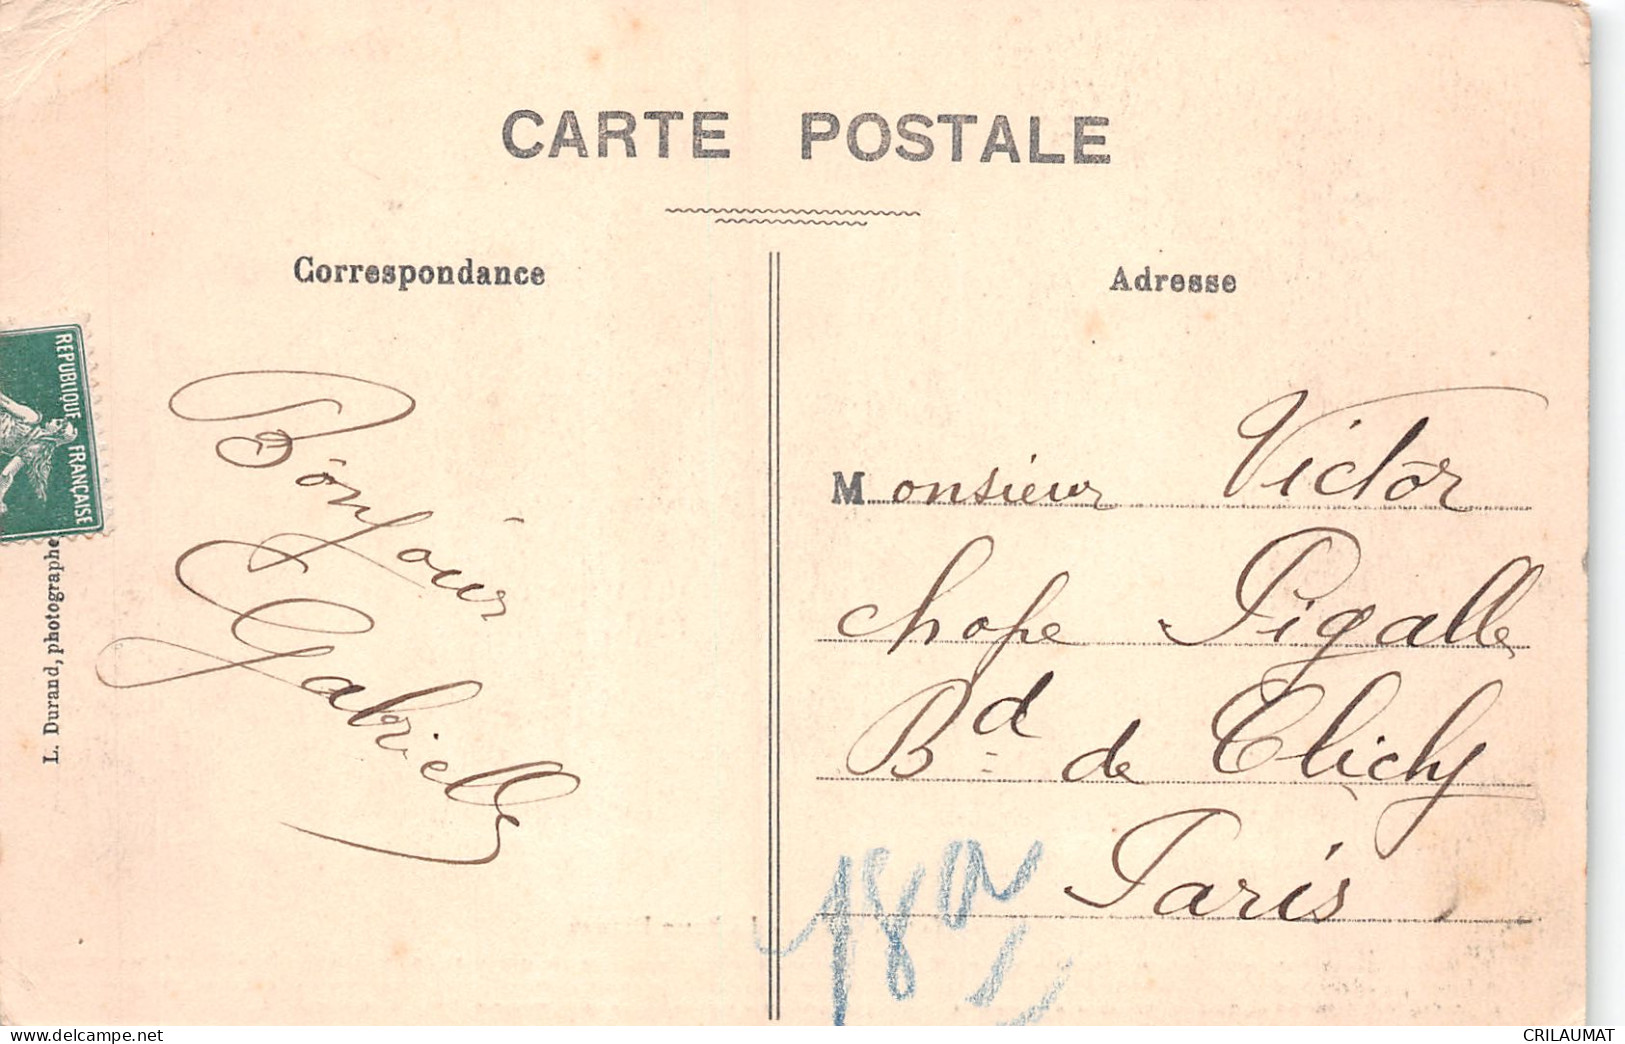 CARTE POSTALE
Correspondance
Adresse
REPUBLIQUE FRANÇAISE
L. Durand, photographe
Bonjour
Gabrielle
Monsieur Victor
chope Pigalle
Bd de Clichy
Paris
18
www.delcampe.net
CRILAUMAT